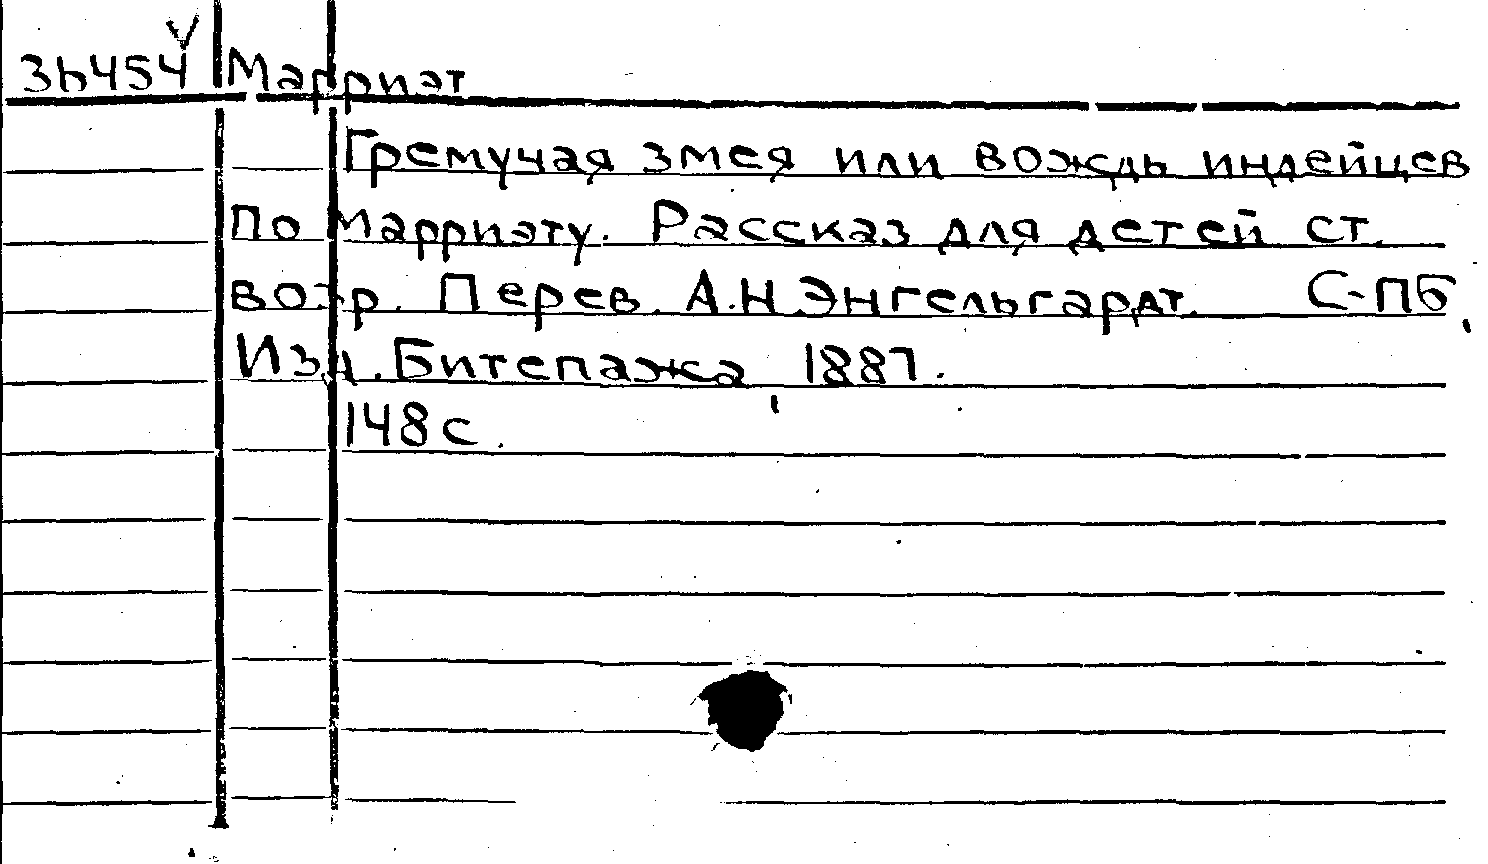 36454 Марриэт
Гремучая змея или вождь индейцев
по Марриэту. Рассказ для детей ст.
возр. Перев. А.Н.Энгельгардт. С-ПБ,
Изд. Битепажа, 1887.
148 с.